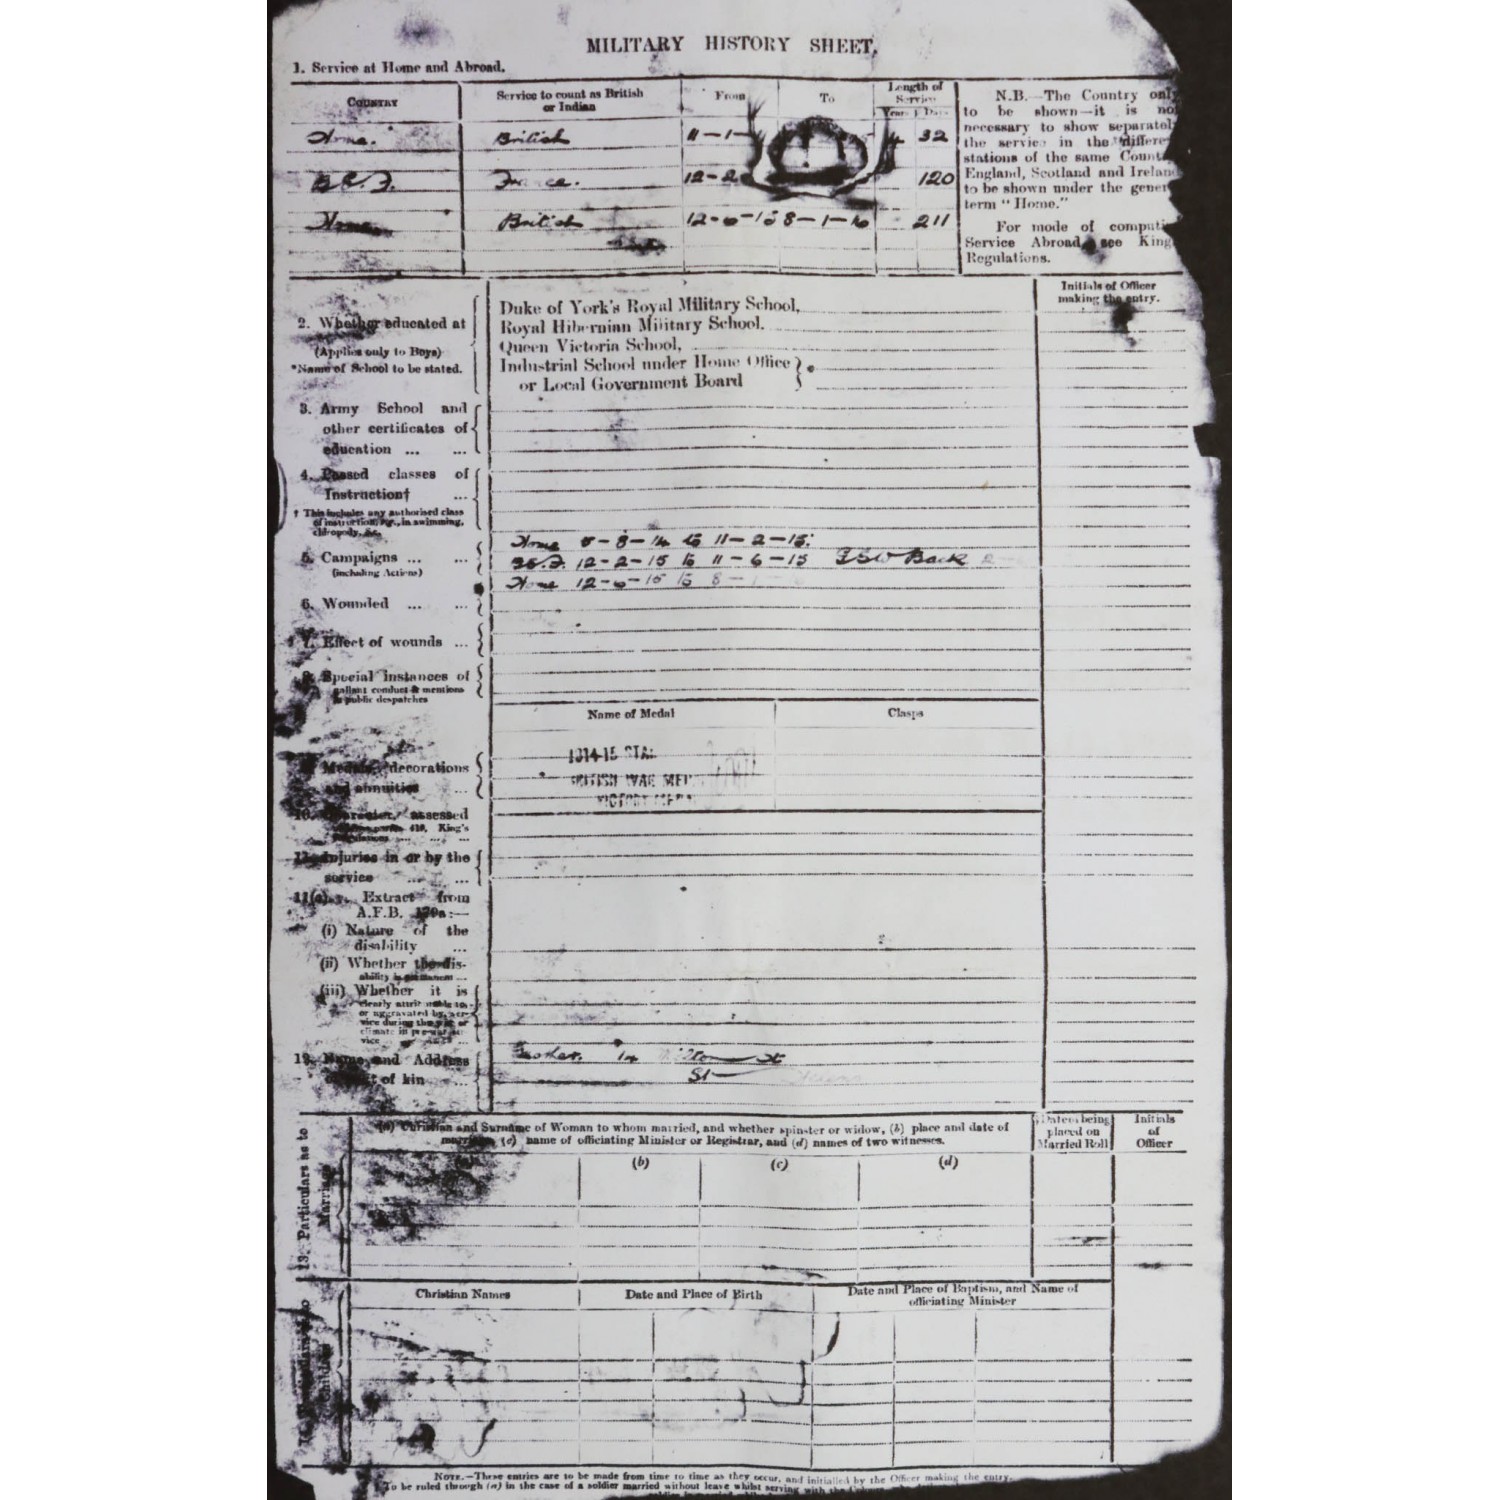 MILITARY HISTORY SHEET.
1. Service at Home and Abroad.
COUNTRY
Service to count as British or Indian
From
To
Length of Service
Years Days
Home. British 11-1- 4 32
B.E.F. France. 12-2 120
Home British 12-6-15 8-1-16 211
N.B.—The Country only
to be shown—it is no
necessary to show separatel
the service in the differe
stations of the same Count
England, Scotland and Irelan
to be shown under the gener
term "Home."
For mode of computi
Service Abroad, see King
Regulations.
Initials of Officer
making the entry.
2. Whether educated at
(Applies only to Boys)
*Name of School to be stated.
Duke of York's Royal Military School,
Royal Hibernian Military School.
Queen Victoria School,
Industrial School under Home Office
or Local Government Board
3. Army School and
other certificates of
education ... ...
4. Passed classes of
Instruction† ...
† This includes any authorised class
of instruction, e.g., in swimming,
chiropody, &c.
5. Campaigns ... ...
(including Actions)
Home 5-8-14 to 11-2-15.
B.E.F. 12-2-15 to 11-6-15 GSW Back
Home 12-6-15 to 8-1
6. Wounded ... ...
7. Effect of wounds ...
8. Special instances of
gallant conduct & mentions
in public despatches
Name of Medal
Clasps
9. Medals, decorations
and annuities ...
1914-15 STAR
BRITISH WAR MED
VICTORY MEDA
10. Character, assessed
419, King's
11. Injuries in or by the
service ... ...
11(a). Extract from
A.F.B. 179a:—
(i) Nature of the
disability ...
(ii) Whether the dis-
ability is permanent ...
(iii) Whether it is
clearly attributable to,
or aggravated by, ser-
vice during the war or
climate in pre-war ser-
vice
12. Name and Address
of next of kin ...
Father. 14 St
St
13. Particulars as to
Marriage
(a) Christian and Surname of Woman to whom married, and whether spinster or widow, (b) place and date of
marriage, (c) name of officiating Minister or Registrar, and (d) names of two witnesses.
Date of being
placed on
Married Roll
Initials
of
Officer
(b) (c) (d)
14. Particulars as to
Children
Christian Names
Date and Place of Birth
Date and Place of Baptism, and Name of
officiating Minister
NOTE.—These entries are to be made from time to time as they occur, and initialled by the Officer making the entry.
To be ruled through (a) in the case of a soldier married without leave whilst serving with the Colours